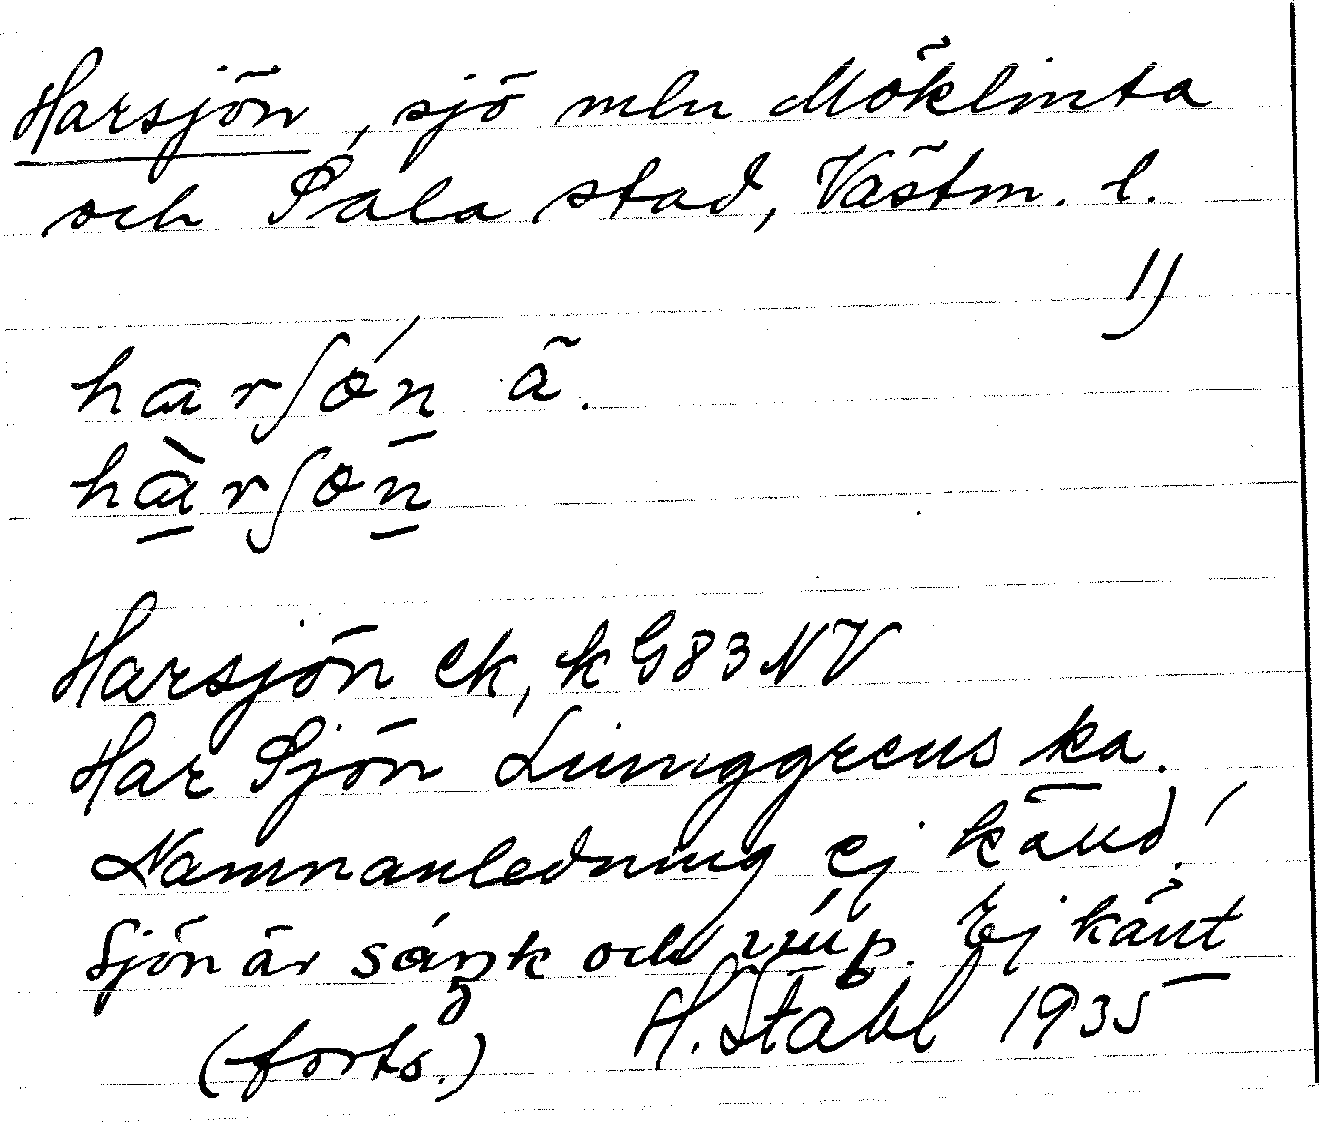 Harsjön, sjö mln Möklinta
och Sala stad, Västm. l.
1)
harʃón ä.
hàrʃon
Harsjön ek, k G83NV
Har Sjön Ljunggrens ka.
Namnanledning ej känd!
Sjön är och Ej känt
(forts.) H. Ståhl 1935